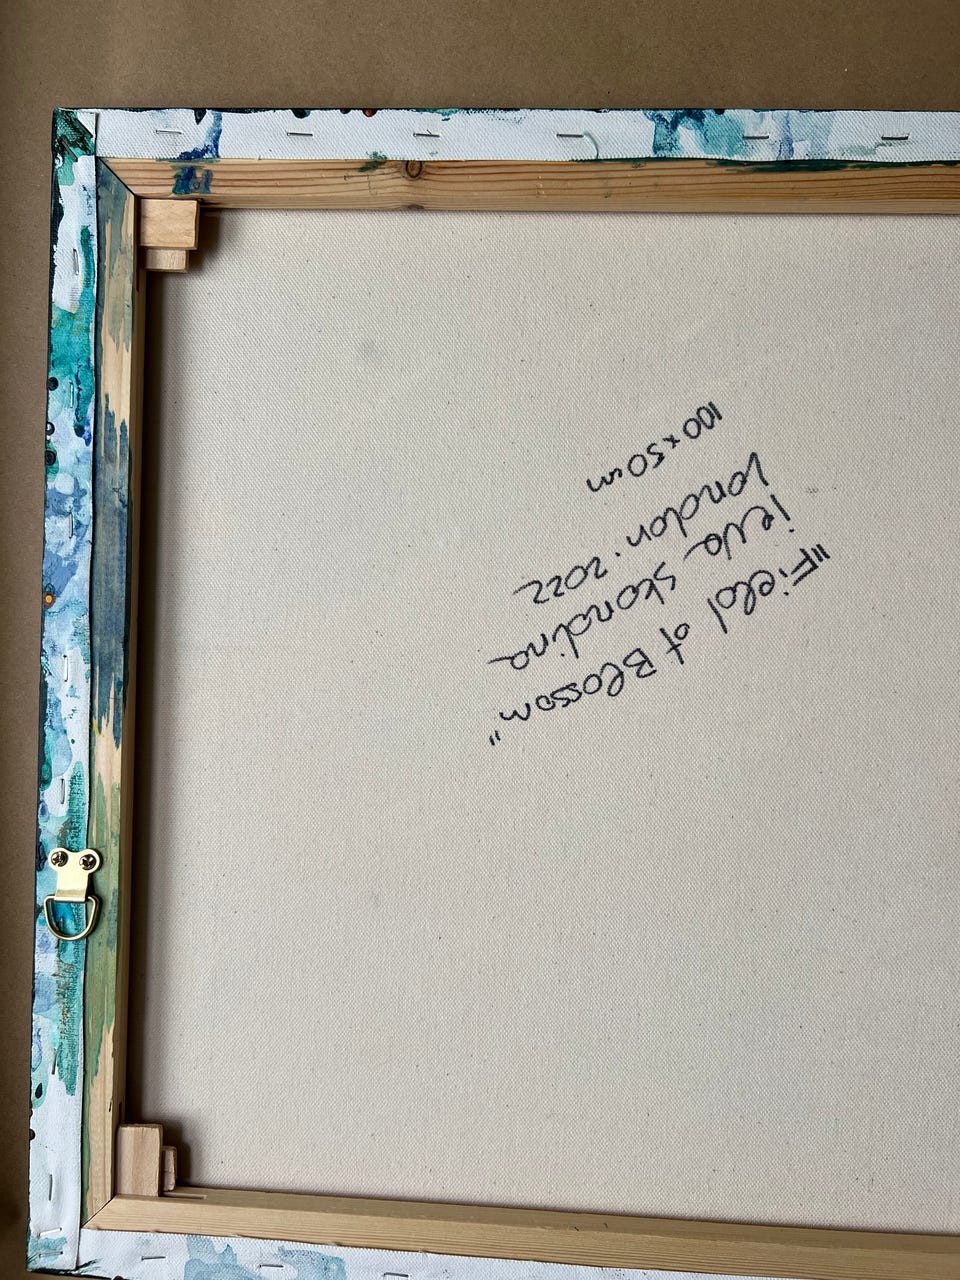 "Field of Blossom"
ieva skondina
London. 2022
100 x 50 cm